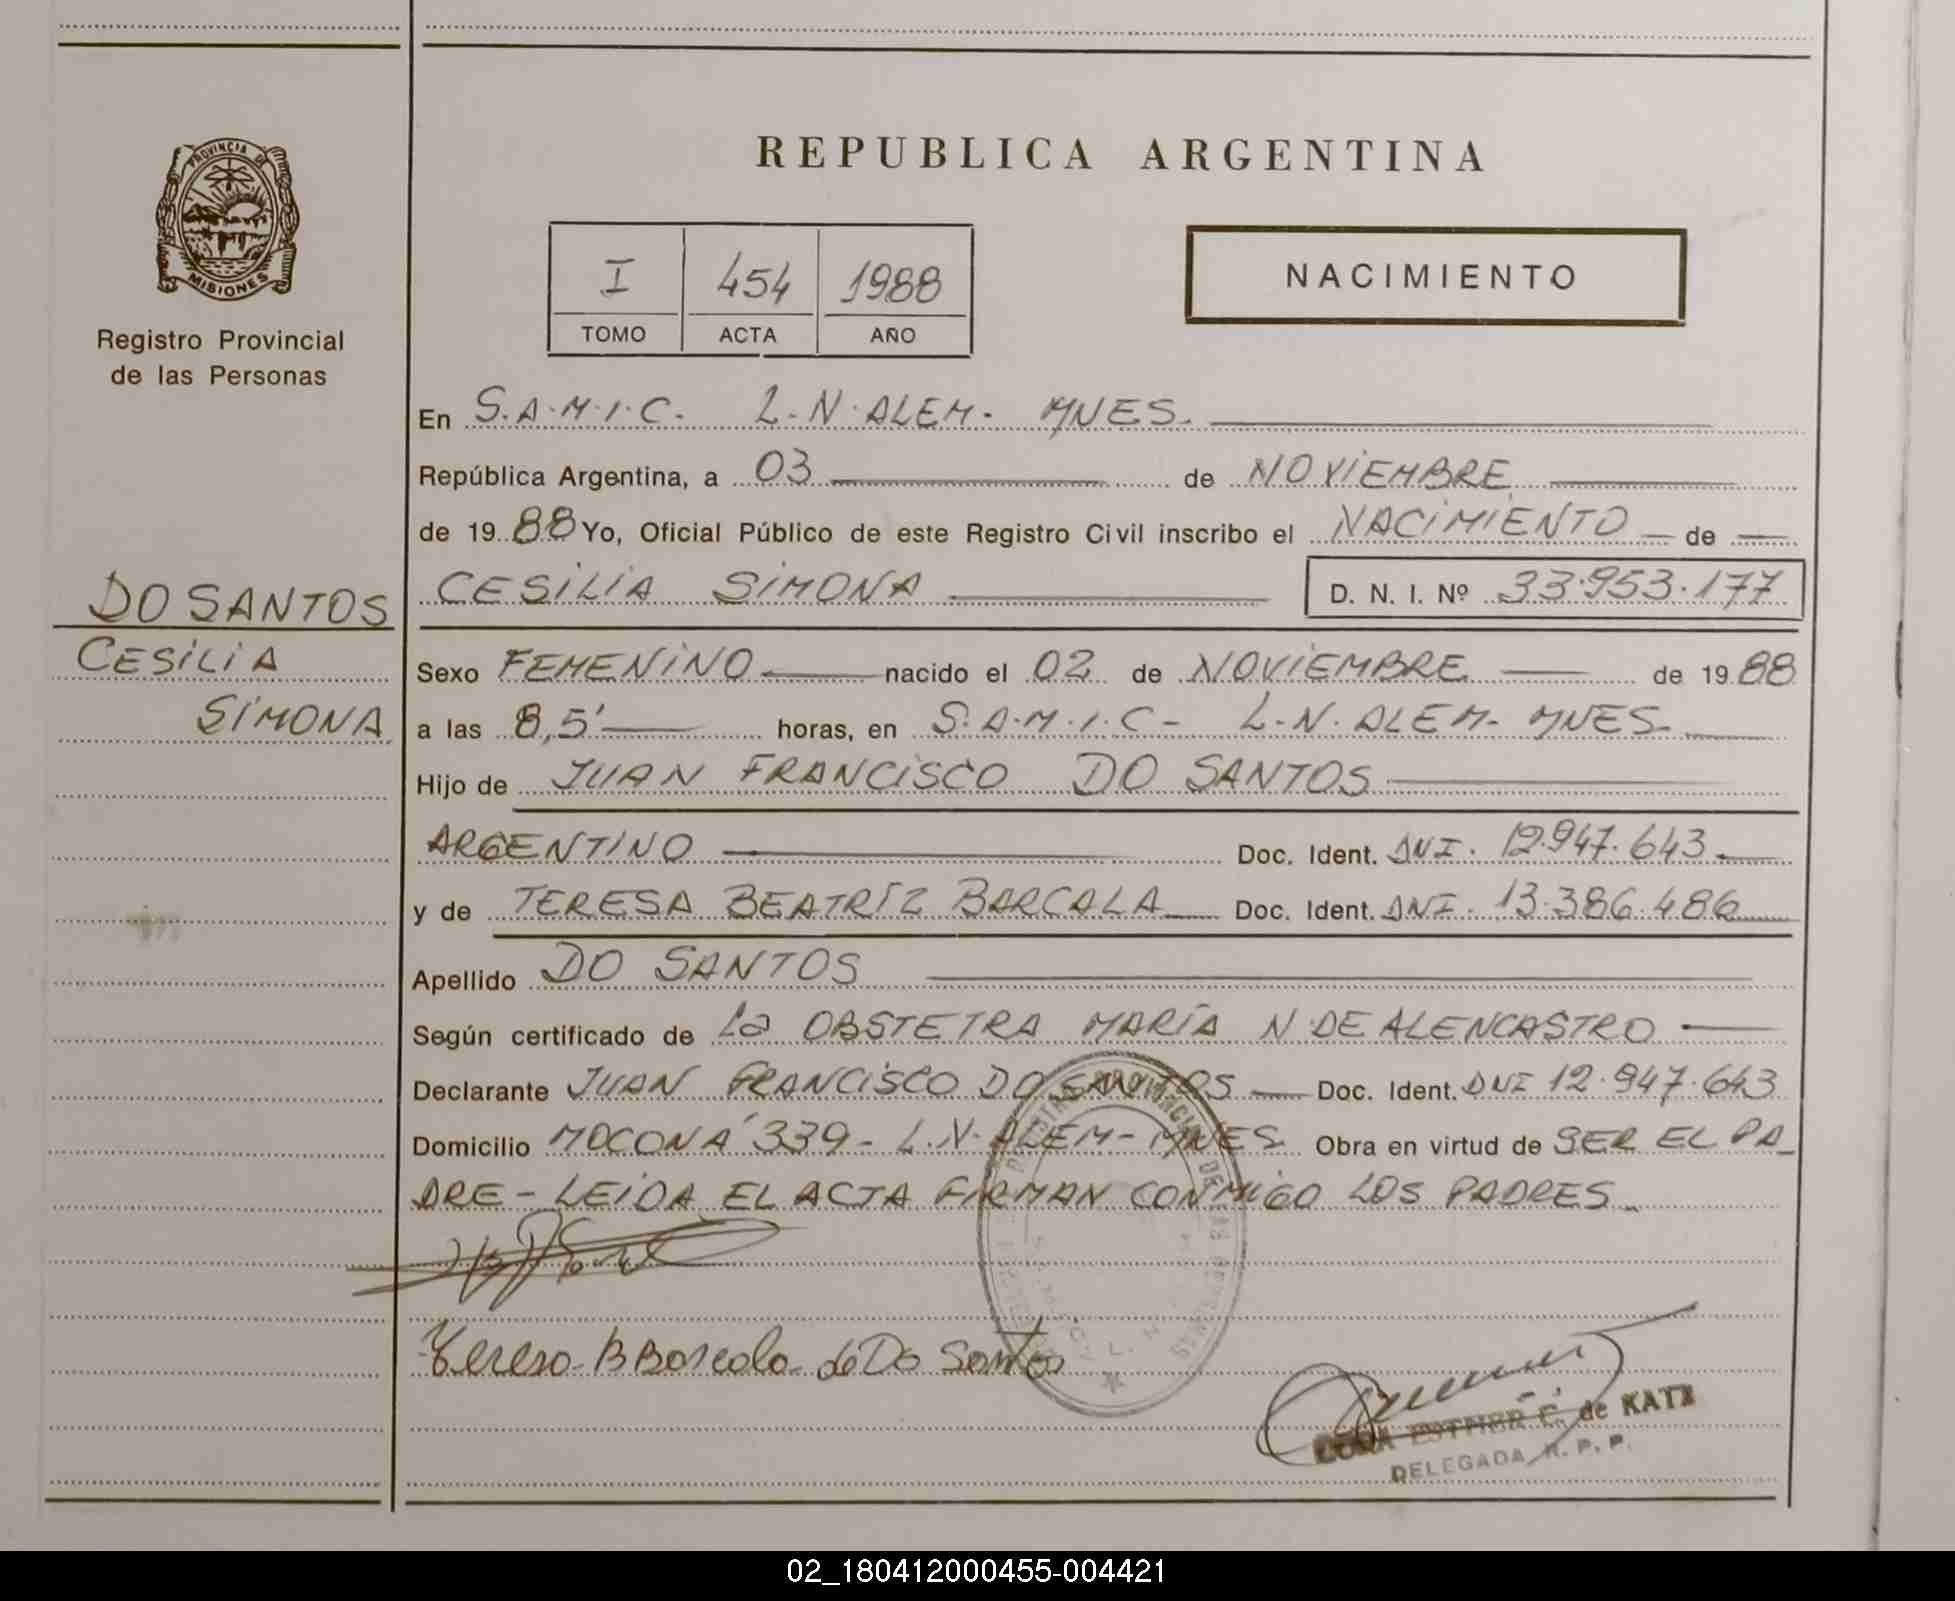 PROVINCIA DE
MISIONES
Registro Provincial
de las Personas
DO SANTOS
CESILIA
SIMONA
REPUBLICA ARGENTINA
I 454 1988
TOMO ACTA AÑO
NACIMIENTO
En S.A.M.I.C. L.N.ALEM. MNES.
República Argentina, a 03 de NOVIEMBRE
de 1988 Yo, Oficial Público de este Registro Civil inscribo el NACIMIENTO de
CESILIA SIMONA D. N. I. Nº 33.953.177
Sexo FEMENINO nacido el 02 de NOVIEMBRE de 1988
a las 8,5' horas, en S.A.M.I.C- L.N.ALEM- MNES-
Hijo de JUAN FRANCISCO DO SANTOS
ARGENTINO Doc. Ident. DNI. 12.947.643
y de TERESA BEATRÍZ BARCALA Doc. Ident. DNI. 13.386.486
Apellido DO SANTOS
Según certificado de La OBSTETRA MARÍA N DE ALENCASTRO
Declarante JUAN FRANCISCO DO SANTOS Doc. Ident. DNI 12.947.643
Domicilio MOCONÁ 339- L.N.ALEM- MNES Obra en virtud de SER EL PA
DRE- LEIDA EL ACTA FIRMAN CONMIGO LOS PADRES
Teresa B Barcala de Do Santos
ESTHER E. de KATZ
DELEGADA R. P. P.
02_180412000455-004421